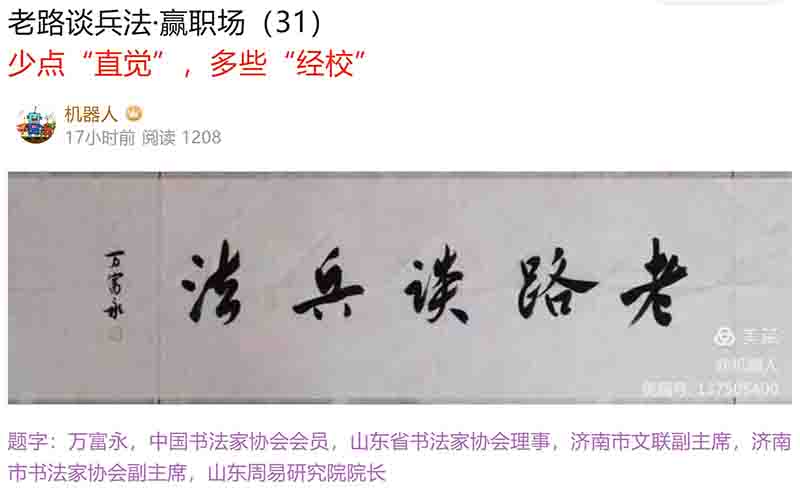 老路谈兵法·赢职场（31）
少点“直觉”，多些“经校”
机器人
17小时前 阅读 1208
老路谈兵法
万富永
美篇
@机器人
美篇号 137505400
题字：万富永，中国书法家协会会员，山东省书法家协会理事，济南市文联副主席，济南
市书法家协会副主席，山东周易研究院院长